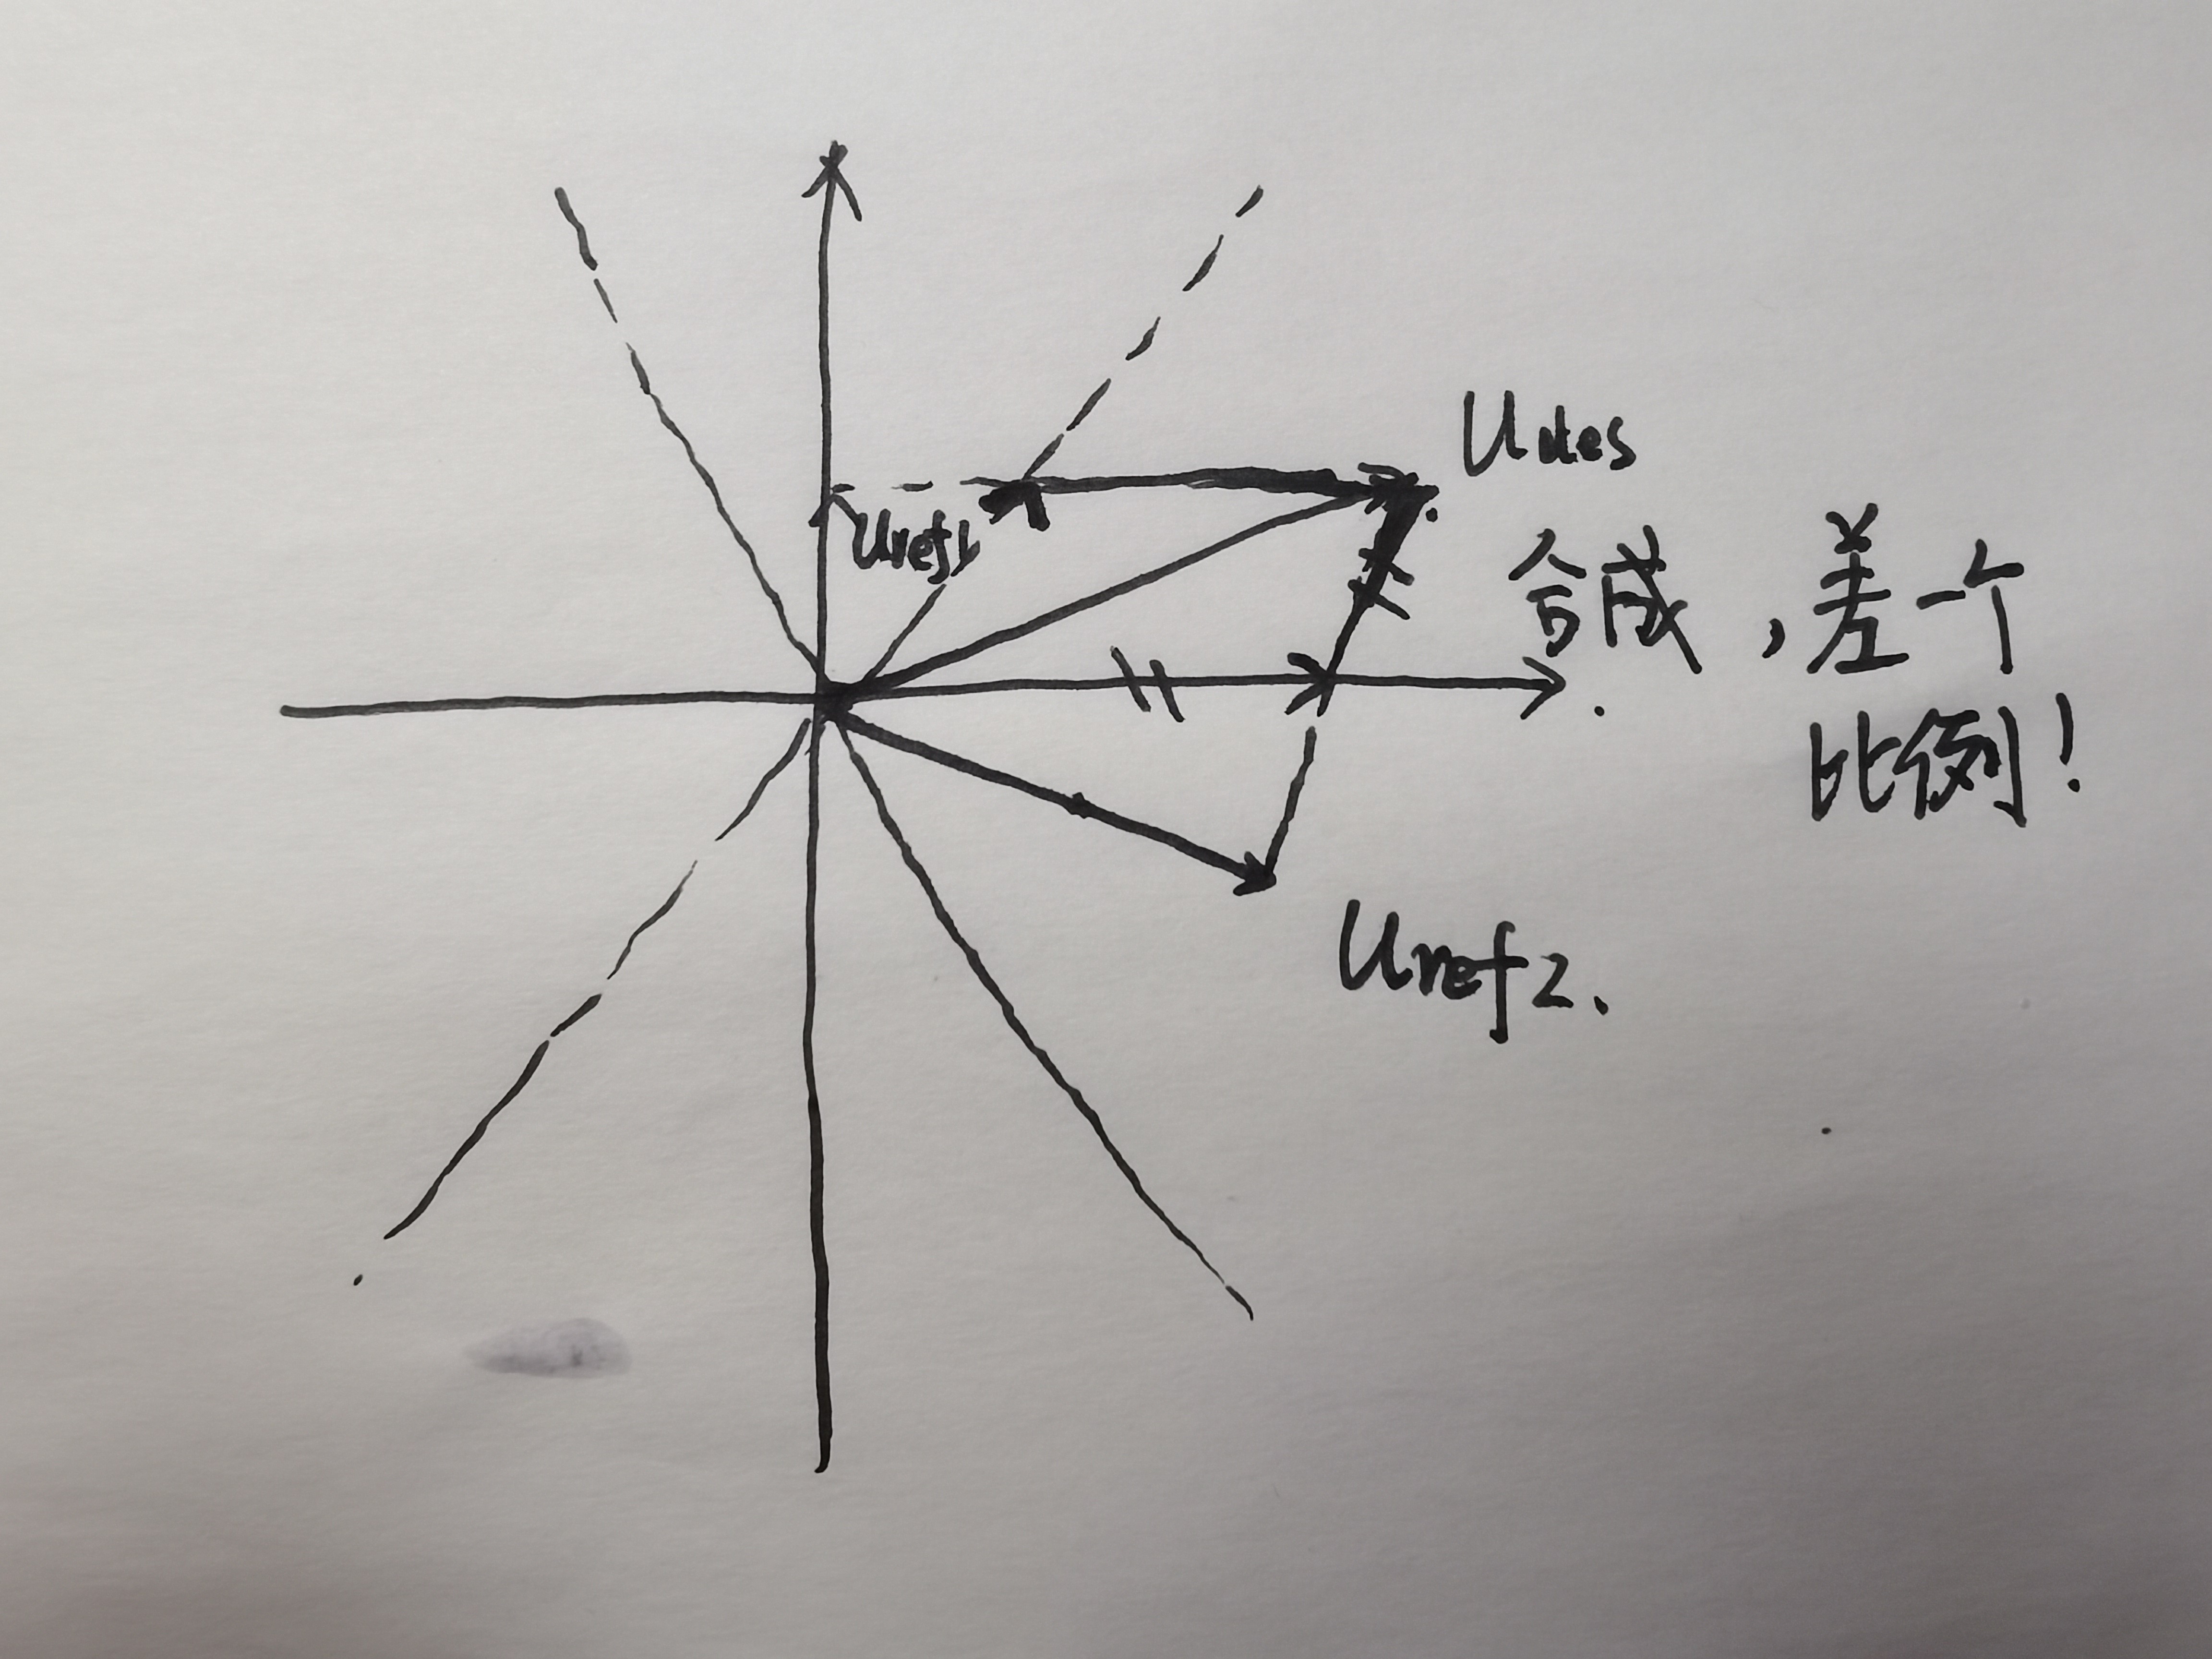 Udes
Uref1
合成，差一个
比例！
Uref2.